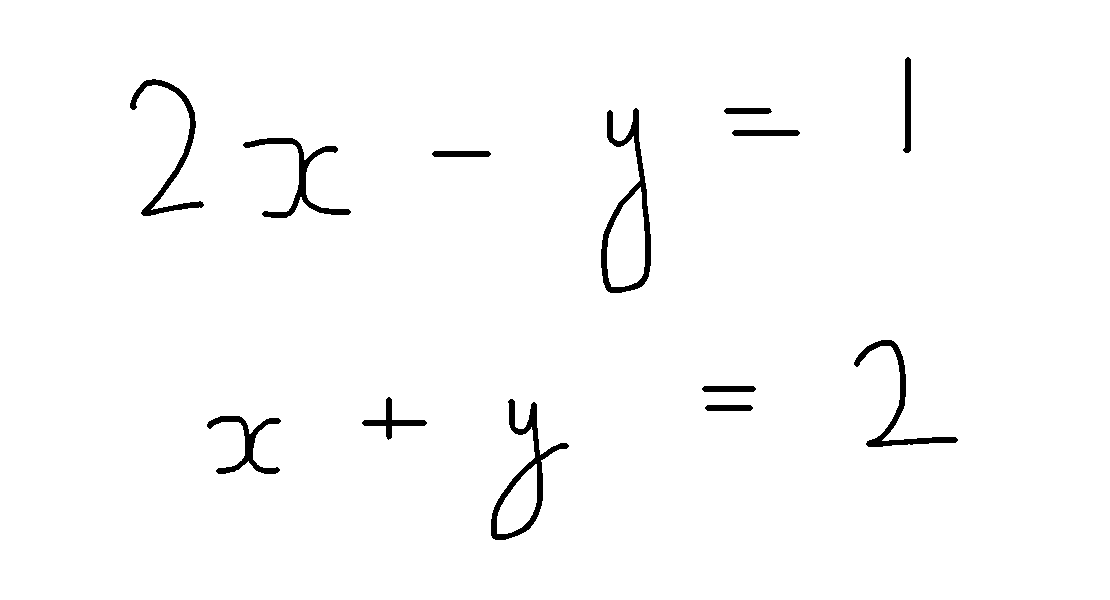 2x - y = 1
x + y = 2